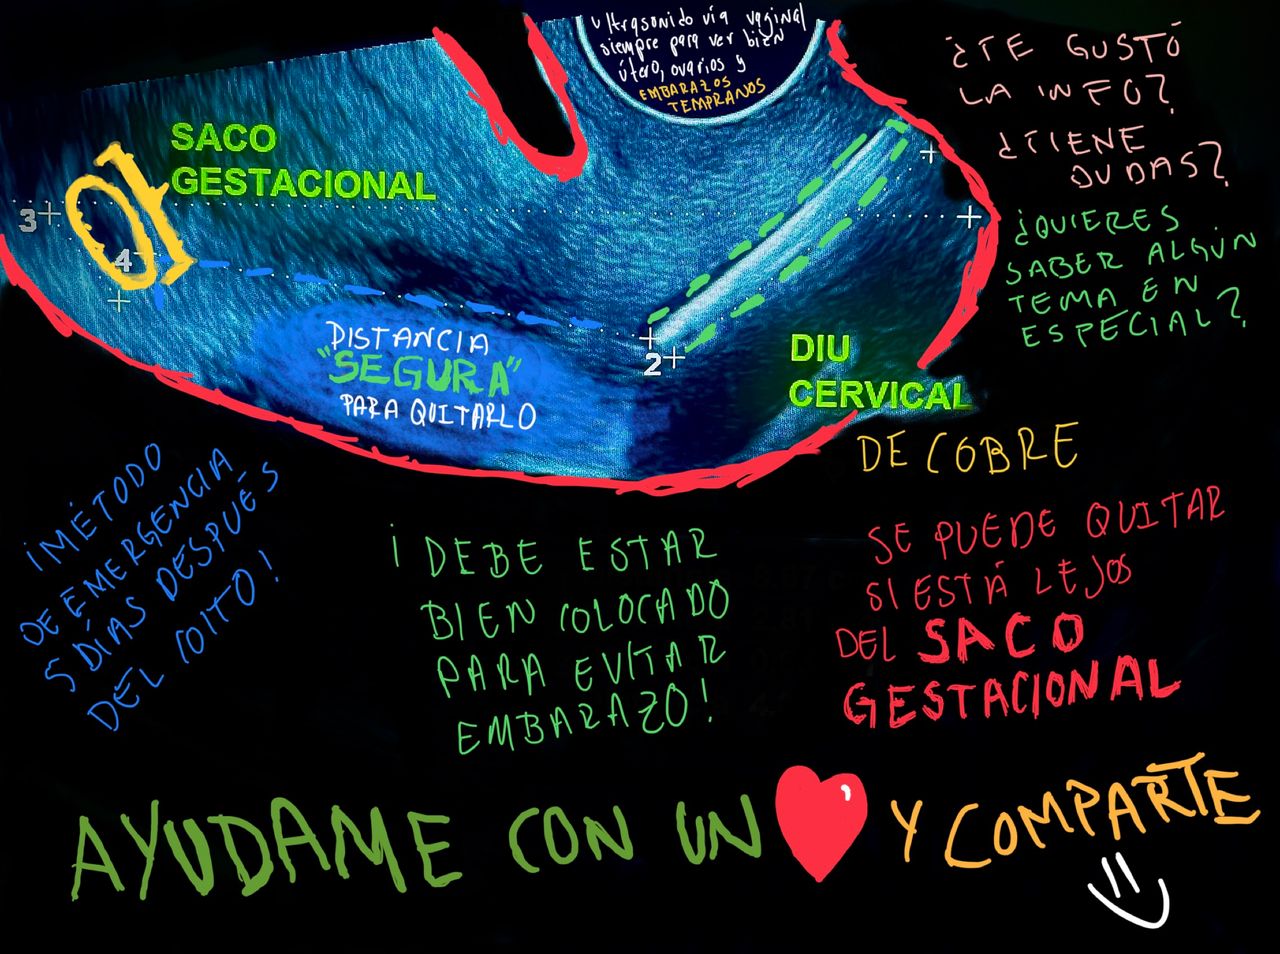 Ultrasonido vía vaginal
siempre para ver bien
útero, ovarios y
EMBARAZOS
TEMPRANOS
¿TE GUSTÓ
LA INFO?
¿TIENE
DUDAS?
¿QUIERES
SABER ALGÚN
TEMA EN
ESPECIAL?
SACO
GESTACIONAL
3
4
2
DISTANCIA
"SEGURA"
PARA QUITARLO
DIU
CERVICAL
DE COBRE
¡MÉTODO
DE EMERGENCIA
5 DÍAS DESPUÉS
DEL COITO!
¡DEBE ESTAR
BIEN COLOCADO
PARA EVITAR
EMBARAZO!
SE PUEDE QUITAR
SI ESTÁ LEJOS
DEL SACO
GESTACIONAL
AYUDAME CON UN Y COMPARTE